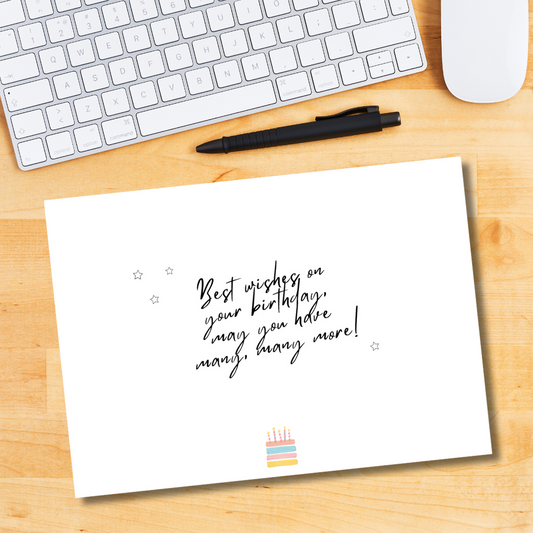 command
command
Best wishes on
your birthday,
may you have
many, many more!